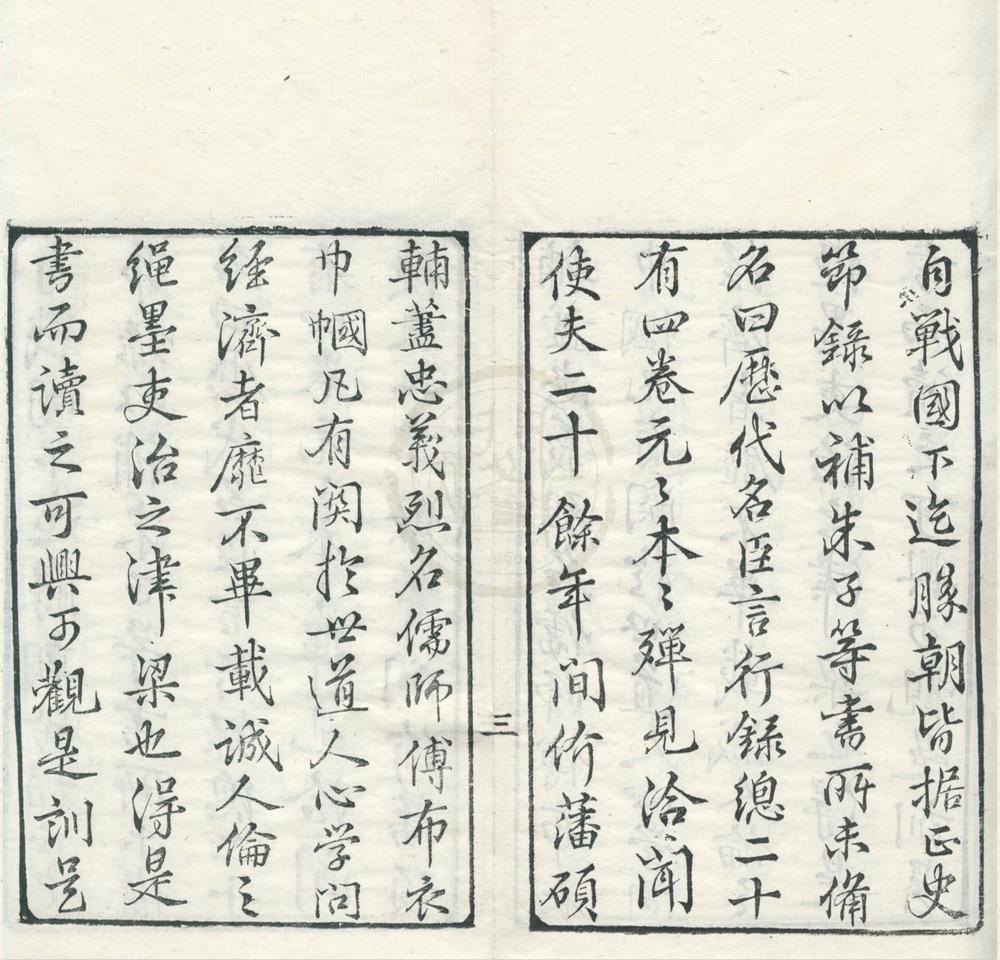 自戰國下迄勝朝皆据正史
節錄以補朱子等書所未備
名曰歷代名臣言行錄總二十
有四卷元〻本〻殫見洽聞
使夫二十餘年間价藩碩
三
輔藎忠義烈名儒師傅布衣
巾幗凡有関於世道人心学問
經濟者靡不畢載誠人倫之
繩墨吏治之津梁也得是
書而讀之可興可觀是訓是